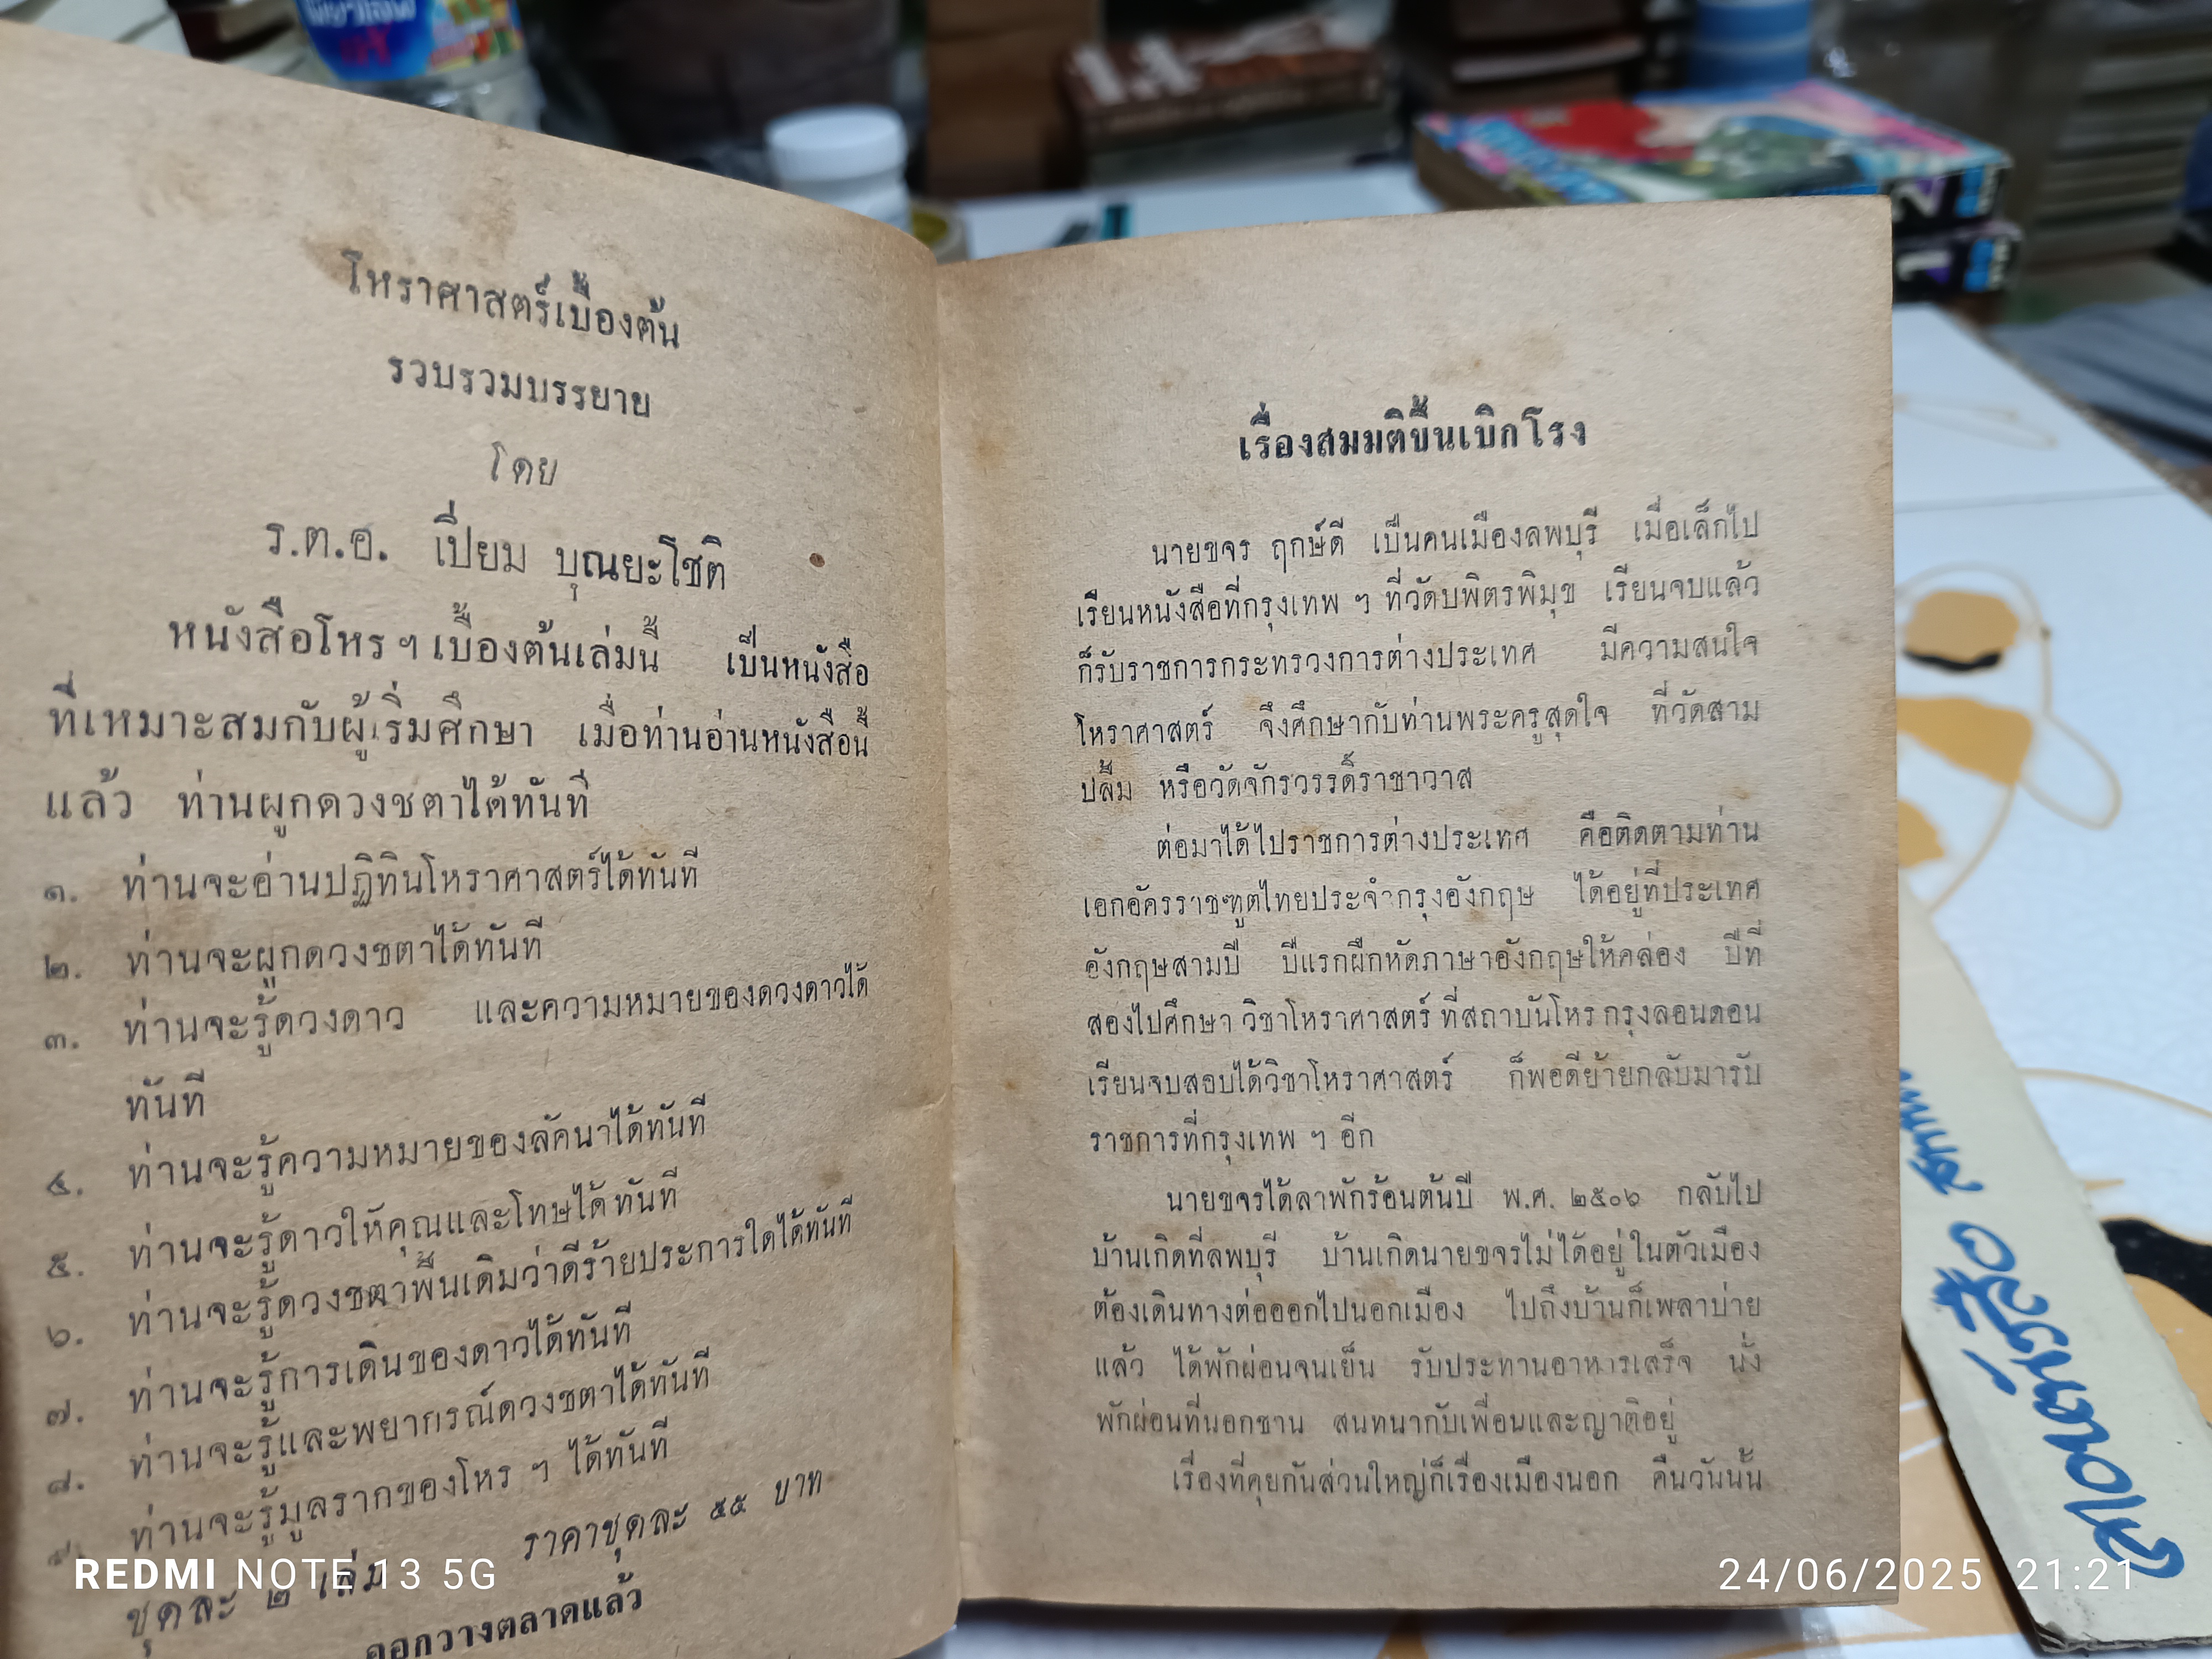 โหราศาสตร์เบื้องต้น
รวบรวมบรรยาย
โดย
ร.ต.อ. เปี่ยม บุณยะโชติ
หนังสือโหร ฯ เบื้องต้นเล่มนี้ เป็นหนังสือ
ที่เหมาะสมกับผู้เริ่มศึกษา เมื่อท่านอ่านหนังสือนี้
แล้ว ท่านผูกดวงชตาได้ทันที
๑. ท่านจะอ่านปฏิทินโหราศาสตร์ได้ทันที
๒. ท่านจะผูกดวงชตาได้ทันที
๓. ท่านจะรู้ดวงดาว และความหมายของดวงดาวได้
ทันที
๔. ท่านจะรู้ความหมายของลัคนาได้ทันที
๕. ท่านจะรู้ดาวให้คุณและโทษได้ทันที
๖. ท่านจะรู้ดวงชตาพื้นเดิมว่าดีร้ายประการใดได้ทันที
๗. ท่านจะรู้การเดินของดาวได้ทันที
๘. ท่านจะรู้และพยากรณ์ดวงชตาได้ทันที
๙. ท่านจะรู้มูลรากของโหร ฯ ได้ทันที
ชุดละ ๒ เล่ม ราคาชุดละ ๕๕ บาท
ออกวางตลาดแล้ว
เรื่องสมมติขึ้นเบิกโรง
นายขจร ฤกษ์ดี เป็นคนเมืองลพบุรี เมื่อเล็กไป
เรียนหนังสือที่กรุงเทพ ฯ ที่วัดบพิตรพิมุข เรียนจบแล้ว
ก็รับราชการกระทรวงการต่างประเทศ มีความสนใจ
โหราศาสตร์ จึงศึกษากับท่านพระครูสุดใจ ที่วัดสาม
ปลื้ม หรือวัดจักรวรรดิ์ราชาวาส
ต่อมาได้ไปราชการต่างประเทศ คือติดตามท่าน
เอกอัครราชฑูตไทยประจำกรุงอังกฤษ ได้อยู่ที่ประเทศ
อังกฤษสามปี ปีแรกฝึกหัดภาษาอังกฤษให้คล่อง ปีที่
สองไปศึกษา วิชาโหราศาสตร์ ที่สถาบันโหร กรุงลอนดอน
เรียนจบสอบได้วิชาโหราศาสตร์ ก็พอดีย้ายกลับมารับ
ราชการที่กรุงเทพ ฯ อีก
นายขจรได้ลาพักร้อนต้นปี พ.ศ. ๒๕๐๖ กลับไป
บ้านเกิดที่ลพบุรี บ้านเกิดนายขจรไม่ได้อยู่ในตัวเมือง
ต้องเดินทางต่อออกไปนอกเมือง ไปถึงบ้านก็เพลาบ่าย
แล้ว ได้พักผ่อนจนเย็น รับประทานอาหารเสร็จ นั่ง
พักผ่อนที่นอกชาน สนทนากับเพื่อนและญาติอยู่
เรื่องที่คุยกันส่วนใหญ่ก็เรื่องเมืองนอก คืนวันนั้น
REDMI NOTE 13 5G
24/06/2025 21:21